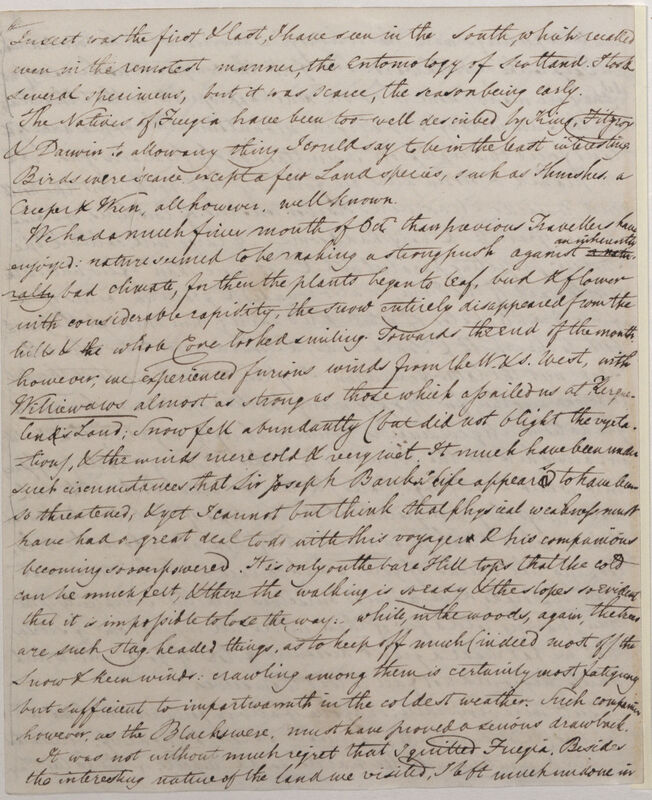 Insect was the first & last, I have seen in the south, which recalled
even in the remotest manner, the Entomology of Scotland. I took
several specimens, but it was scarce, the season being early.
The Natives of Fuegia have been too well described by King, Fitzroy
& Darwin to allow any thing I could say to be in the least interesting
Birds were scarce except a few Land species, such as Thrushes, a
Creeper & Wren, all however, well known.
We had a much finer month of Octr than previous Travellers have
enjoyed: nature seemed to be making a strong push against an inherently
bad climate, for then the plants began to leaf, bud & flower
with considerable rapidity, the snow entirely disappeared from the
hills & the whole Cove looked smiling. Towards the end of the month
however, we experienced furious winds from the W. & S. West, with
Williewaws almost as strong as those which assailed us at Kergue-
len's Land; Snow fell abundantly (but did not blight the vegeta-
tion), & the winds were cold & very wet. It must have been under
such circumstances that Sir Joseph Banks's life appeared to have been
so threatened, & yet I cannot but think that physical weakness must
have had a great deal to do with this voyager & his companions
becoming so overpowered. It is only on the bare Hill tops that the cold
can be much felt, & there the walking is so easy & the slopes so evident
that it is impossible to lose the way: while, in the woods, again, the trees
are such stag headed things, as to keep off much (indeed most of) the
snow & keen winds: crawling among them is certainly most fatiguing
but sufficient to impart warmth in the coldest weather. Such companions
however, as the Blacks were, must have proved a serious drawback.
It was not without much regret that I quitted Fuegia. Besides
the interesting nature of the land we visited, I left much undone in